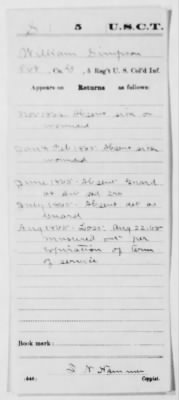 S 5 U.S.C.T.
William Simpson
Pvt, Co. G, 5 Reg't U. S. Col'd Inf.
Appears on Returns as follows:
Nov 1864 Absent sick or
wounded
Jan & Feb 1865 Absent sick
wounded
June 1865 Absent Guard
at Div
July 1865 Absent det as
Guard
Aug 1865 Loss: Aug 22/65
Mustered out per
expiration of term
of service
Book mark:
Copyist.